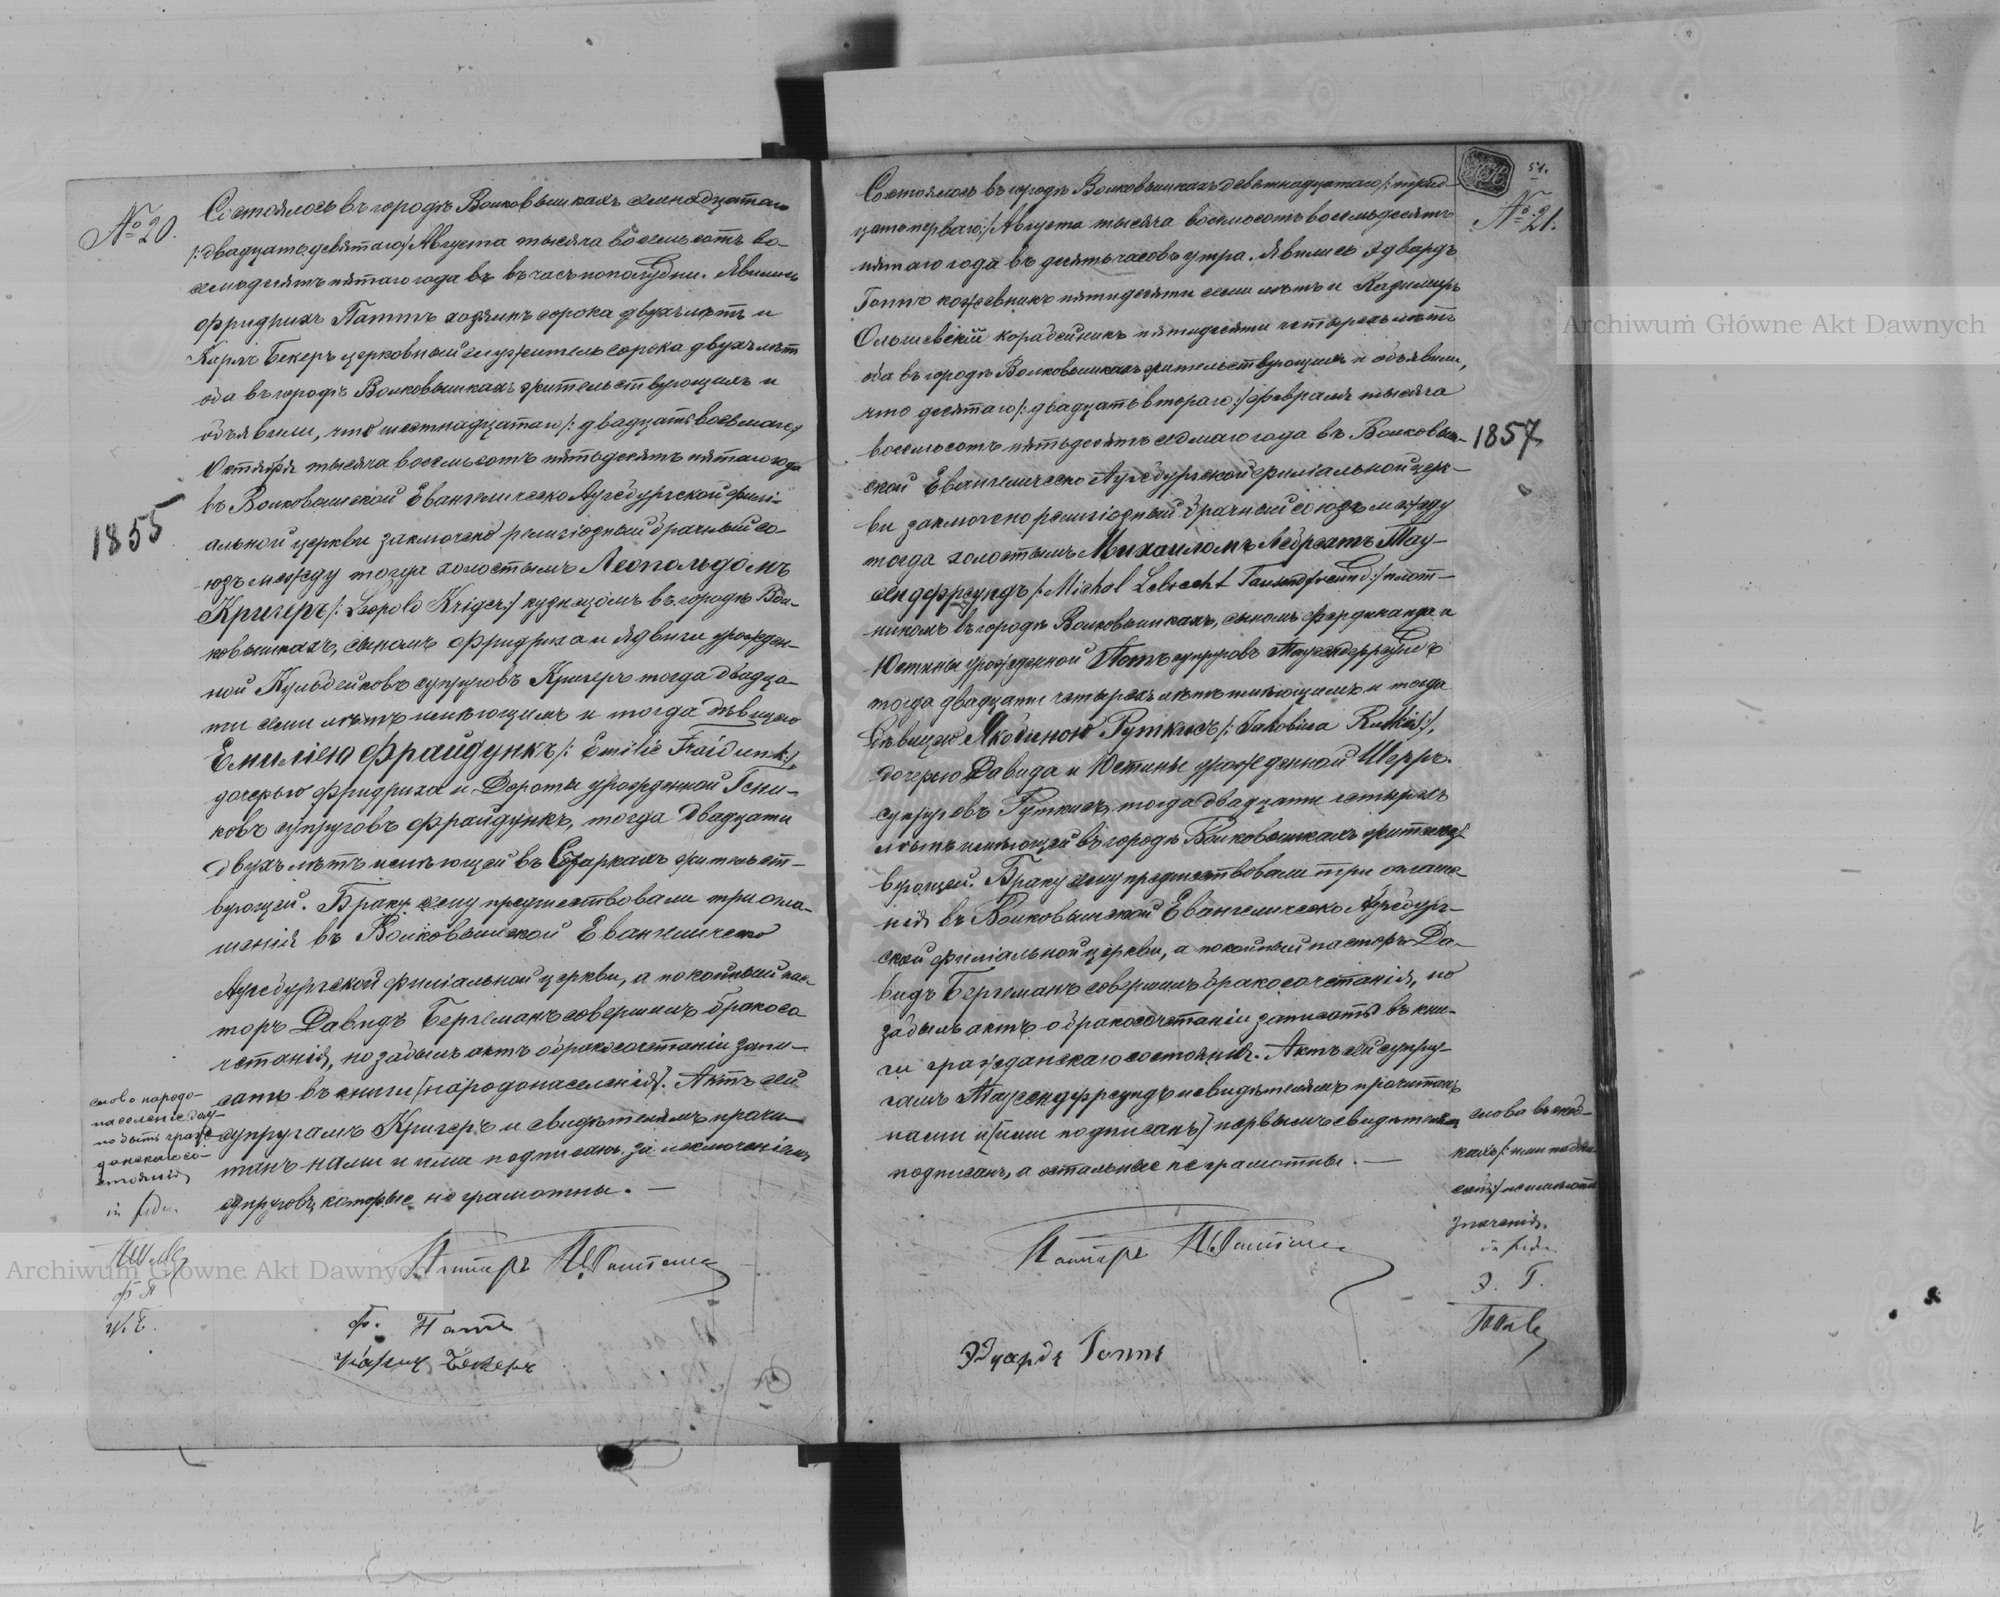 № 20.
Состоялось въ городѣ Волковышкахъ семнадцатаго
/:двадцать девятаго/ Августа тысяча восемьсотъ во-
семьдесятъ пятаго года въ часъ пополудни. Явились
Фридрихъ Паттъ сорока двухъ лѣтъ и
Карлъ Бекеръ церковный служитель сорока двухъ лѣтъ
оба въ городѣ Волковышкахъ жительствующихъ и
объявили, что шестнадцатаго /:двадцать восьмаго:/
Октября тысяча восемьсотъ пятьдесятъ пятаго года
въ Волковышской Евангелическо Аугсбургской филі-
1855
альной церкви заключенъ религіозный брачный со-
юзъ между тогда холостымъ Леопольдомъ
Кригеръ /: Leopold Kriger:/ кузнецомъ въ городѣ Вол-
ковышкахъ, сыномъ Фридриха и Ядвиги урожден-
ной супруговъ Кригеръ тогда двадца-
ти семи лѣтъ имѣющимъ и тогда дѣвицею
Емиліею Фрайдункъ /: Emilie Fraidunk:/,
дочерью Фридриха и Дороты урожденной
супруговъ Фрайдункъ, тогда двадцати
двухъ лѣтъ имѣющей въ жительст-
вующей. Браку сему предшествовали три огла-
шенія въ Волковышской Евангелическо
Аугсбургской филіальной церкви, а покойный пас-
торъ Давидъ Бергеманъ совершилъ бракосо-
четанія, но забылъ актъ о бракосочетаніи запи-
сать въ книги /народонаселенія/. Актъ сей
супругамъ Кригеръ и свидѣтелямъ прочи-
танъ нами и ими подписанъ за исключеніемъ
супруговъ, которые неграмотны. —
слово народо-
населеніе дол-
но быть граж-
данскаго со-
стоянія
in fidem
Ф. П.
К. Б.
Пасторъ
Ф. Патъ
Карлъ Бекеръ
51.
№ 21.
Состоялось въ городѣ Волковышкахъ девятнадцатаго /: трид-
цать перваго:/ Августа тысяча восемьсотъ восемьдесятъ
пятаго года въ десять часовъ утра. Явились Эдвардъ
Гоппъ кожевникъ пятидесяти семи лѣтъ и Казимиръ
Ольшевскій пятидесяти четырехъ лѣтъ
оба въ городѣ Волковышкахъ жительствующихъ и объявили,
что десятаго /:двадцать втораго:/ Февраля тысяча
восемьсотъ пятьдесятъ седмаго года въ Волковыш-
1857
ской Евангелическо Аугсбургской филіальной церк-
ви заключено религіозный брачный союзъ между
тогда холостымъ Михаиломъ Лебрехтъ Тау-
сендфреундъ /: Michal Lebrecht Tausendfreund:/ плот-
никомъ въ городѣ Волковышкахъ, сыномъ Фердинанда и
Юстины урожденной супруговъ Таусендфреундъ
тогда двадцати четырехъ лѣтъ имѣющимъ и тогда
дѣвицею Якобиною Руткисъ /: Jakobina Rutkis:/,
дочерью Давида и Юстины урожденной Шерръ
супруговъ Руткисъ, тогда двадцати четырехъ
лѣтъ имѣющей въ городѣ Волковышкахъ жительст-
вующей. Браку сему предшествовали три оглаше-
нія въ Волковышской Евангелическо Аугсбург-
ской филіальной церкви, а покойный пасторъ Да-
видъ Бергеманъ совершилъ бракосочетанія, но
забылъ актъ о бракосочетаніи записать въ кни-
ги гражданскаго состоянія. Актъ сей супру-
гамъ Таусендфреундъ и свидѣтелямъ прочитанъ
нами и /ими подписанъ/ первымъ свидѣтелемъ
подписанъ, а остальные неграмотны. —
слова въ скоб-
кахъ /:ими подпи-
санъ:/
значенія.
in fidem
Э. Г.
Пасторъ
Эдуардъ Гоппъ
Archiwum Główne Akt Dawnych
Archiwum Główne Akt Dawnych